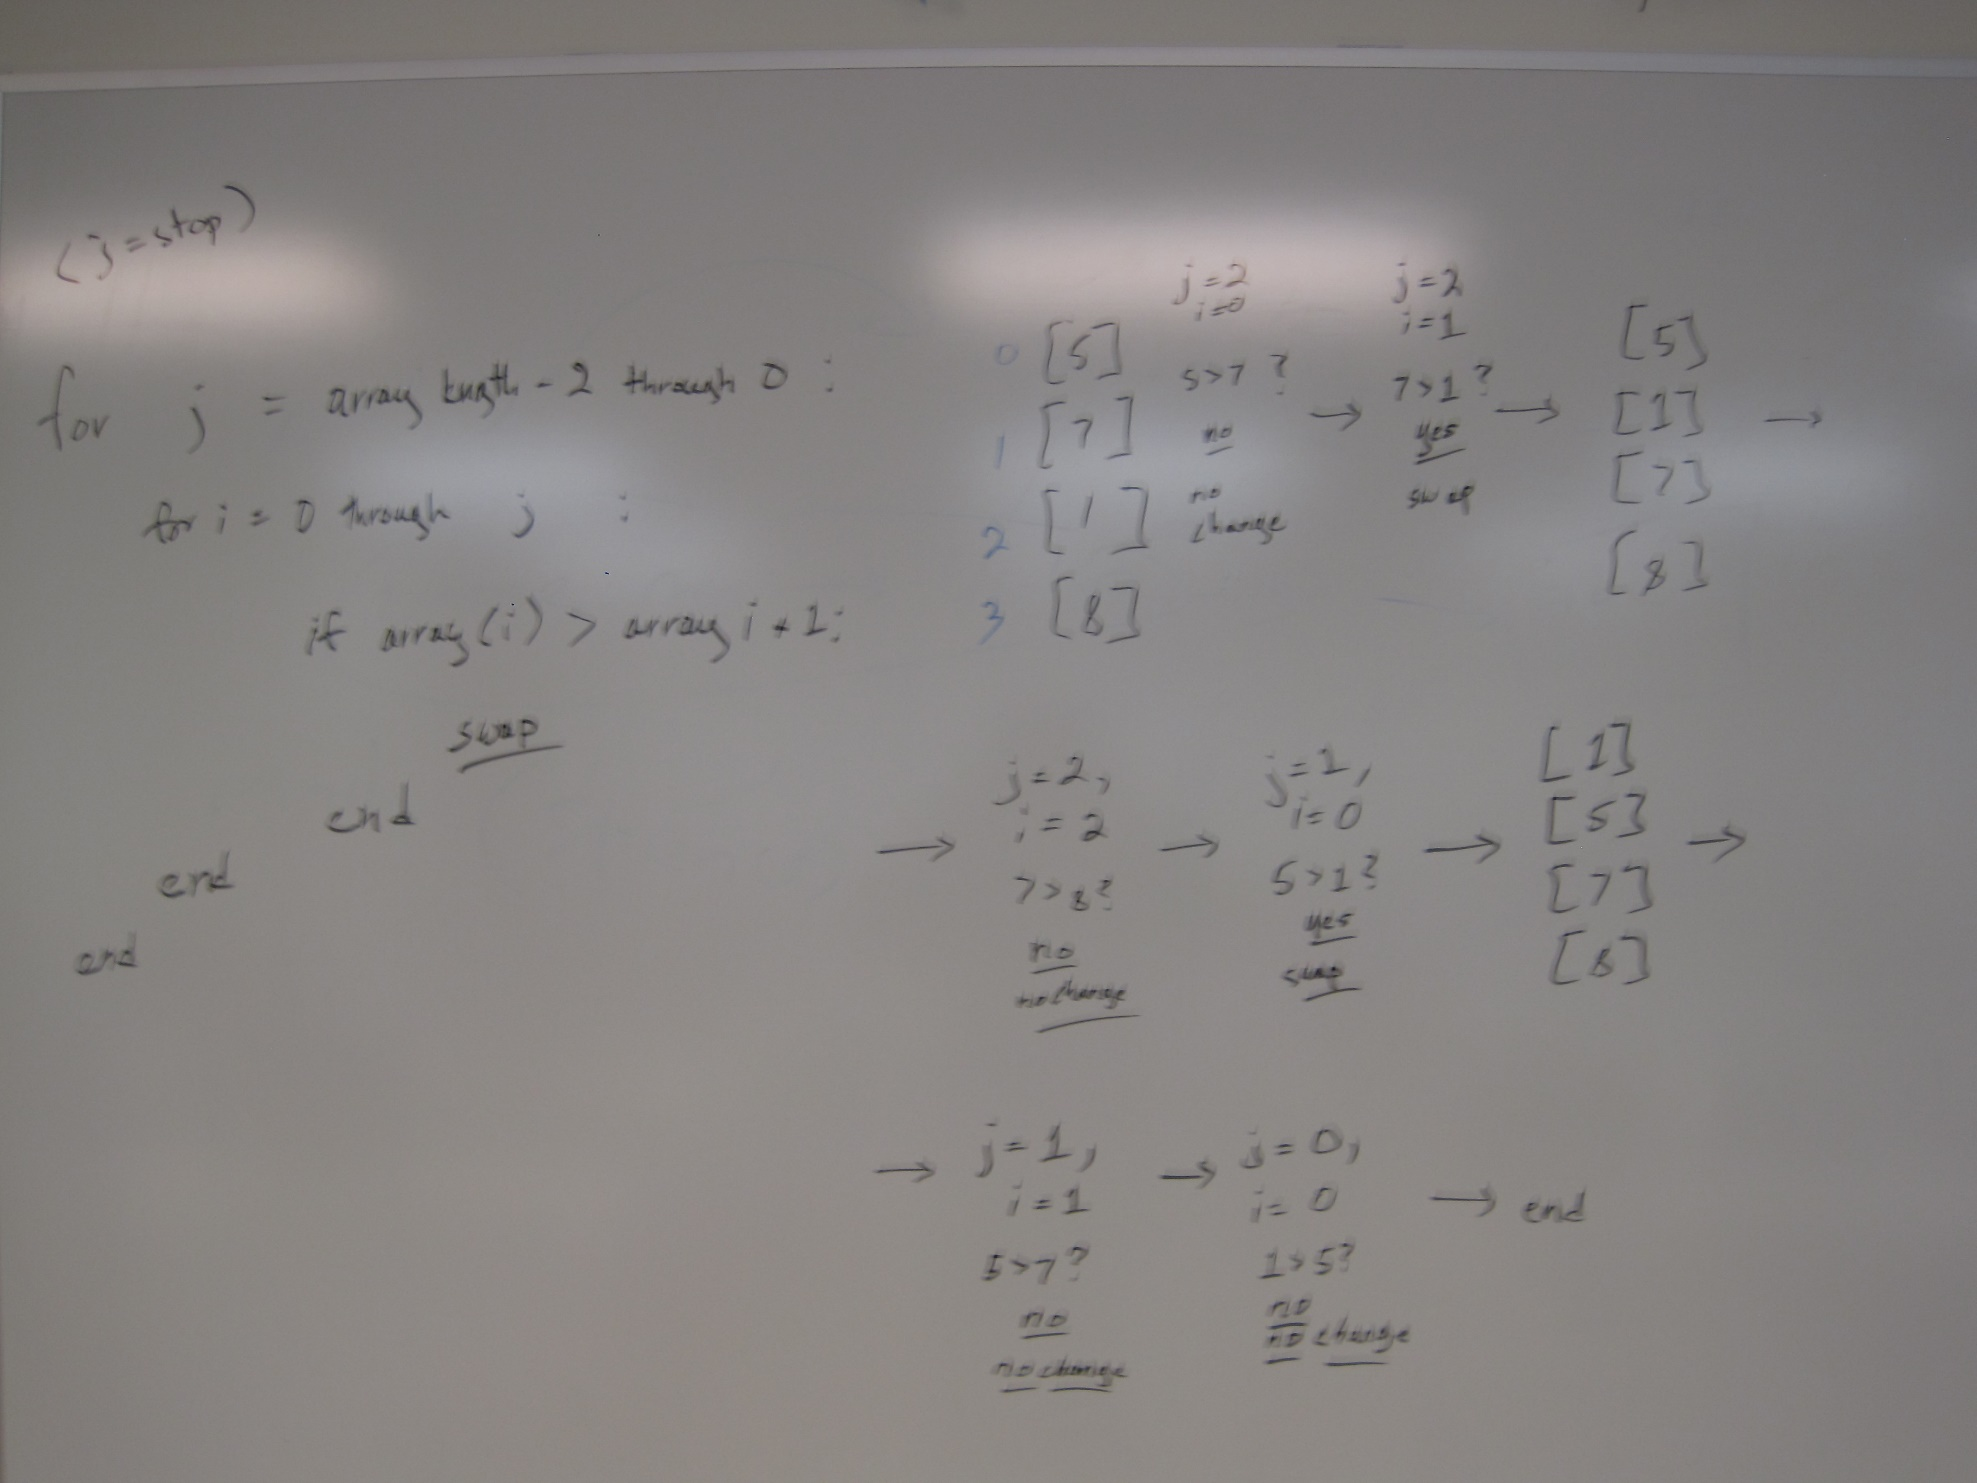 (j=stop)
for j = array length - 2 through 0 :
for i = 0 through j :
if array(i) > array i + 1:
swap
end
end
end
0 [5]
1 [7]
2 [1]
3 [8]
j=2
i=0
5>7 ?
no
no
change
→
j=2
i=1
7>1 ?
yes
swap
→
[5]
[1]
[7]
[8]
→
→
j=2,
i=2
7>8?
no
no change
→
j=1,
i=0
5>1?
yes
swap
→
[1]
[5]
[7]
[8]
→
→
j=1,
i=1
5>7?
no
no change
→
j=0,
i=0
1>5?
no
no change
→ end